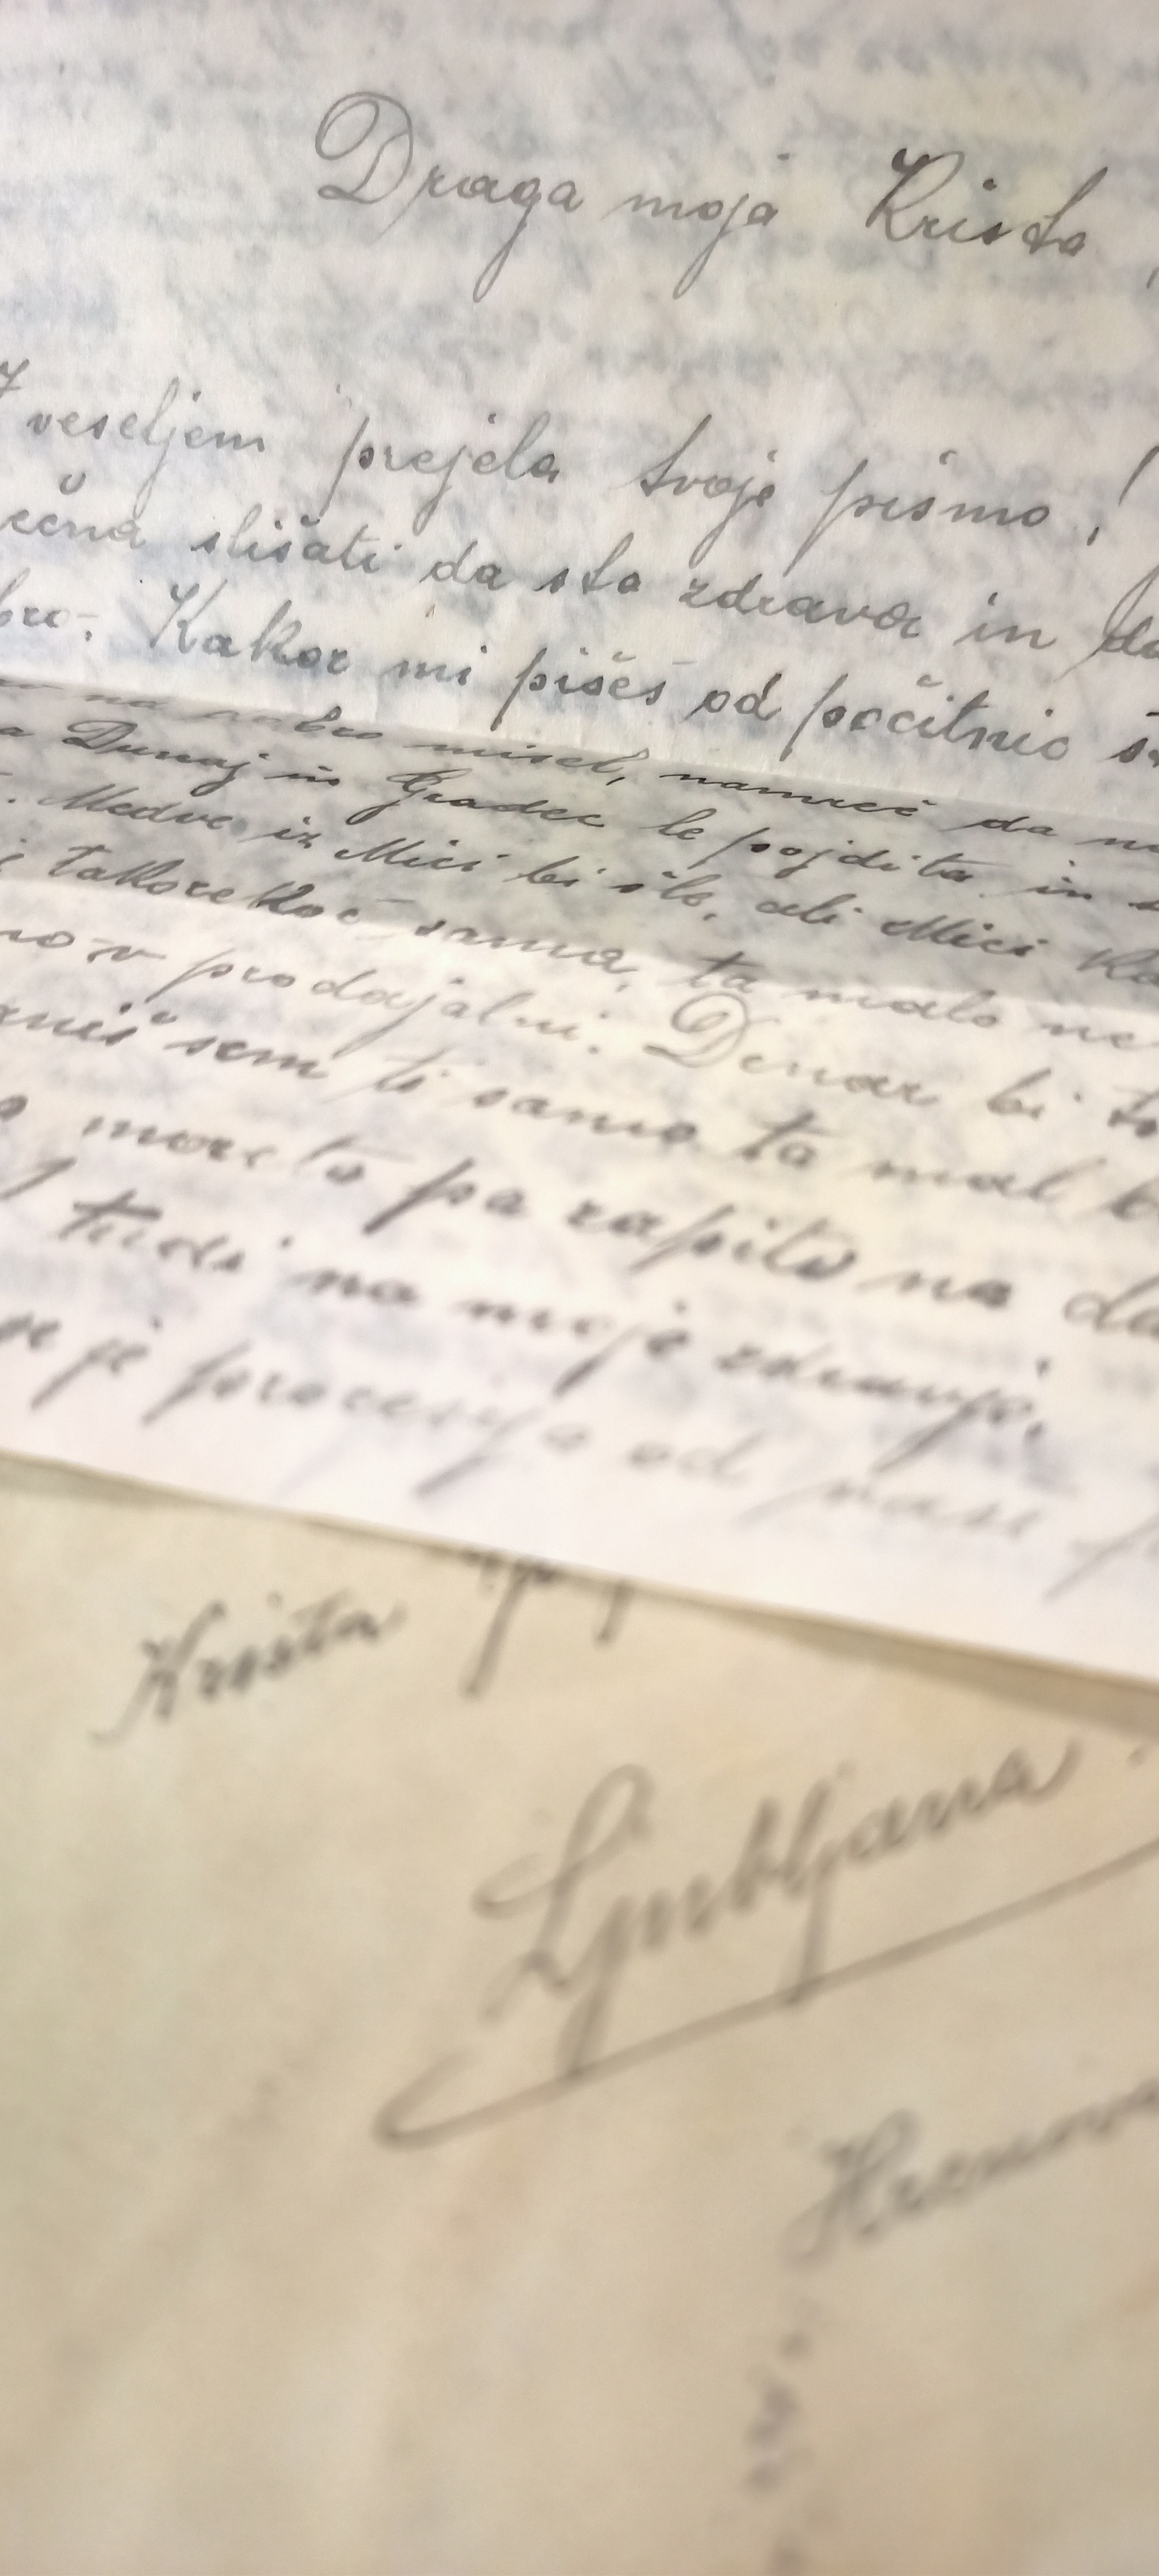 Draga moja Krista,
Z veseljem prejela tvoje pismo!
slišati da sta zdrava in
Kakor mi pišeš od počitnic
misel, namreč da
Dunaj in Gradec le pojdita in
Medve iz Mici bi šle, ali Mici
takorekoč sama, ta malo ne
v prodajalni. Denar bi
sem ti samo ta mal
moreta pa zapito na
tudi na moje zdravje.
je procesija od
Krista
Ljubljana